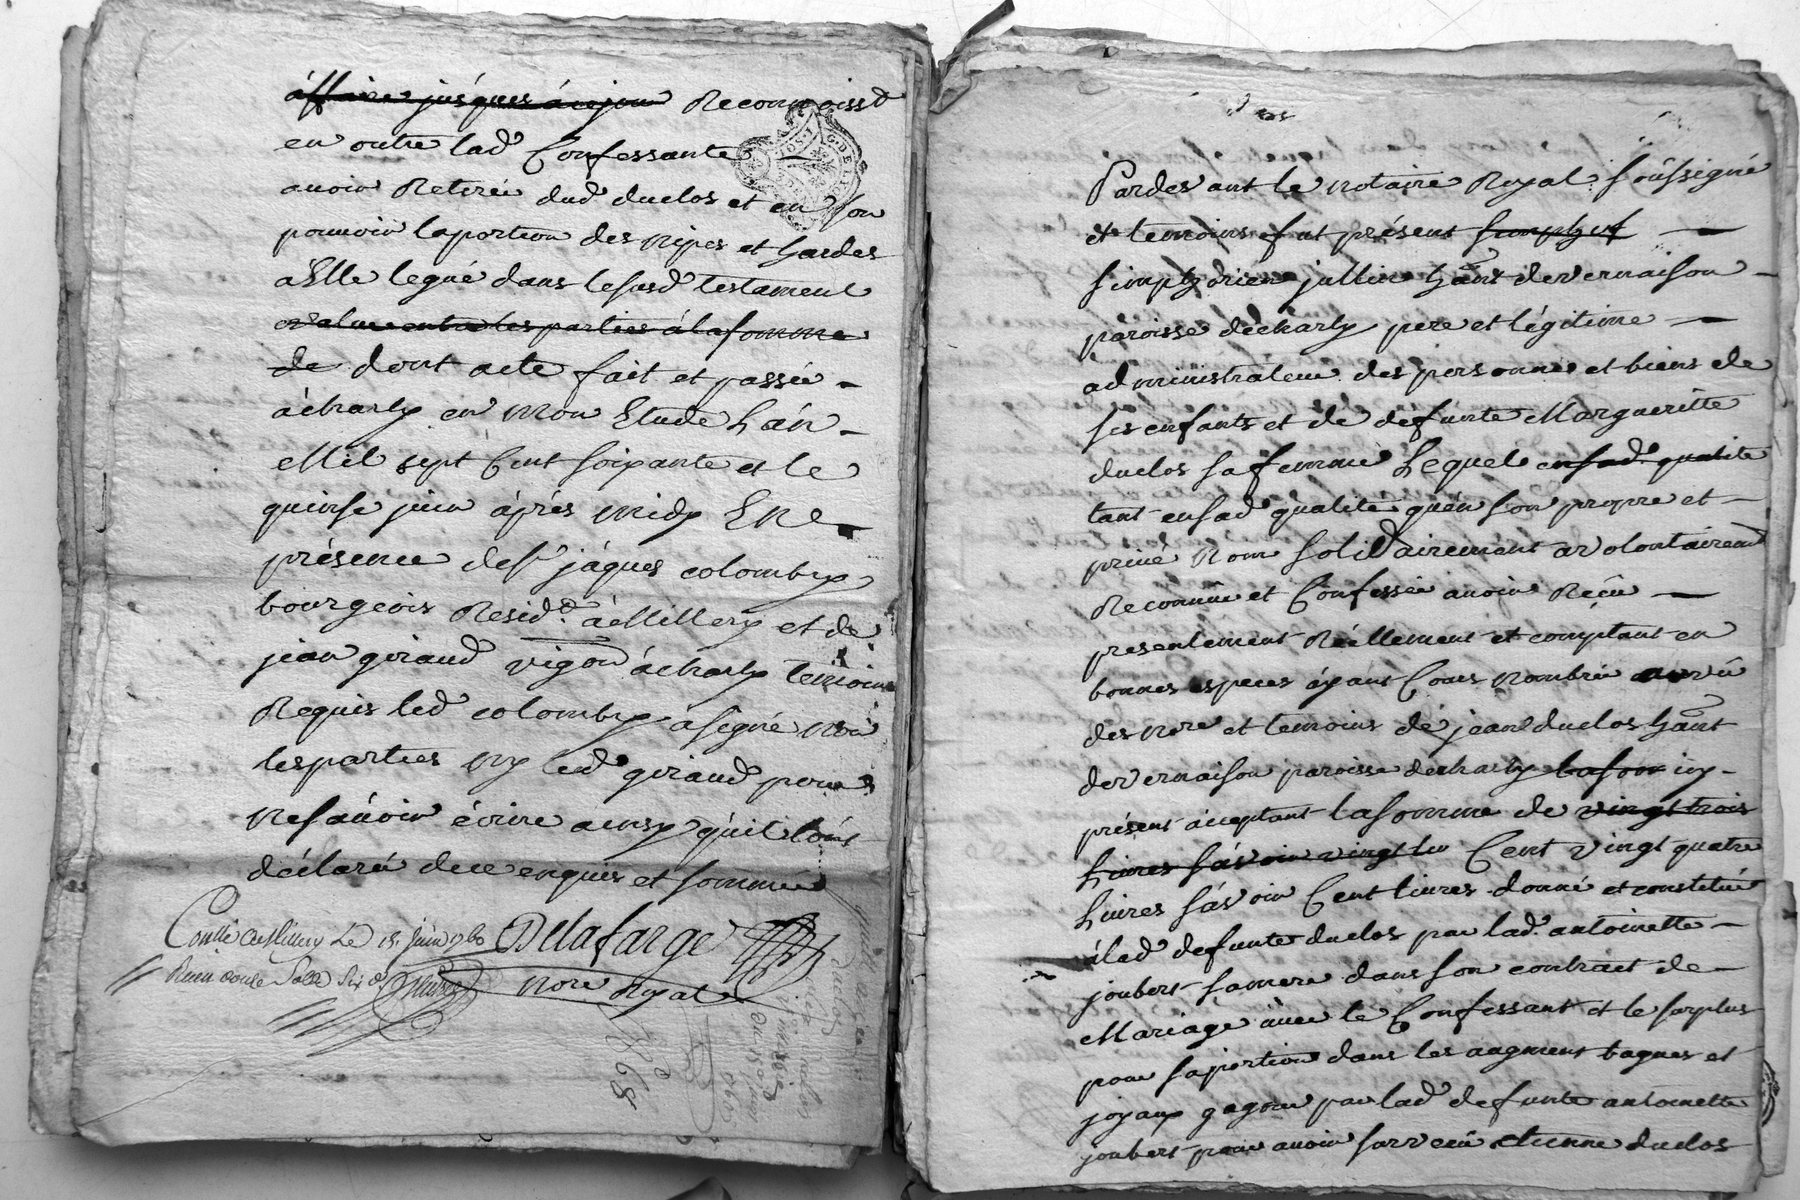 áffaire jusques ácejour Reconnoisst
en outre lade Confessante
auoir Retirée dud duclos et en son
pouuoir laportion des nipes et hardes
aElle legué dans lesusd testament
evalue entre les parties á la somme
de dont acte fait et passée
ácharly en mon Etude L'án
Mil sept Cent soixante et le
quinse juin áprés midy En
présence desr jáques colomby
bourgeois Residt áMillery et de
jean giraud vigon ácharly temoins
Requis led colomby asigné non
lesparties ny led giraud pour
nesauoir écrire ainsy qu'il lónt
déclaré dece enquis et sommé
Conllé aMillery Le 15 juin 1760 Delafarge
Receu douse Sols Six d nore Royal
Pardevant le notaire Royal soussigné
et temoins fut présent simphor
simphorien jullien hant devernaison
paroisse décharly pere et légitime
administrateur des personnes et biens de
ses enfants et de defunte Margueritte
duclos sa femme Lequel ensad qualite
tant ensad qualité quén son propre et
priué nom solidairement avolontairemt
Reconnu et Confessé auoir Reçu
presentement Réellement et comptant en
bonnes especes áyant Cours nombrée auvû
des nore et temoins de jean duclos hant
devernaison paroisse decharly icy
présent acceptant lasomme de vingt trois
Livres sásoin vingt Cent vingt quatre
Livres sásoir Cent livres donné et constitué
álad defunte duclos par lad antoinette
joubert samere dans son contract de
Mariage auec le Confessant et le surplus
pour saportion dans les augment bagues et
joyaux gagné par lad defunte antoinette
joubert pour auoir survecu etienne duclos